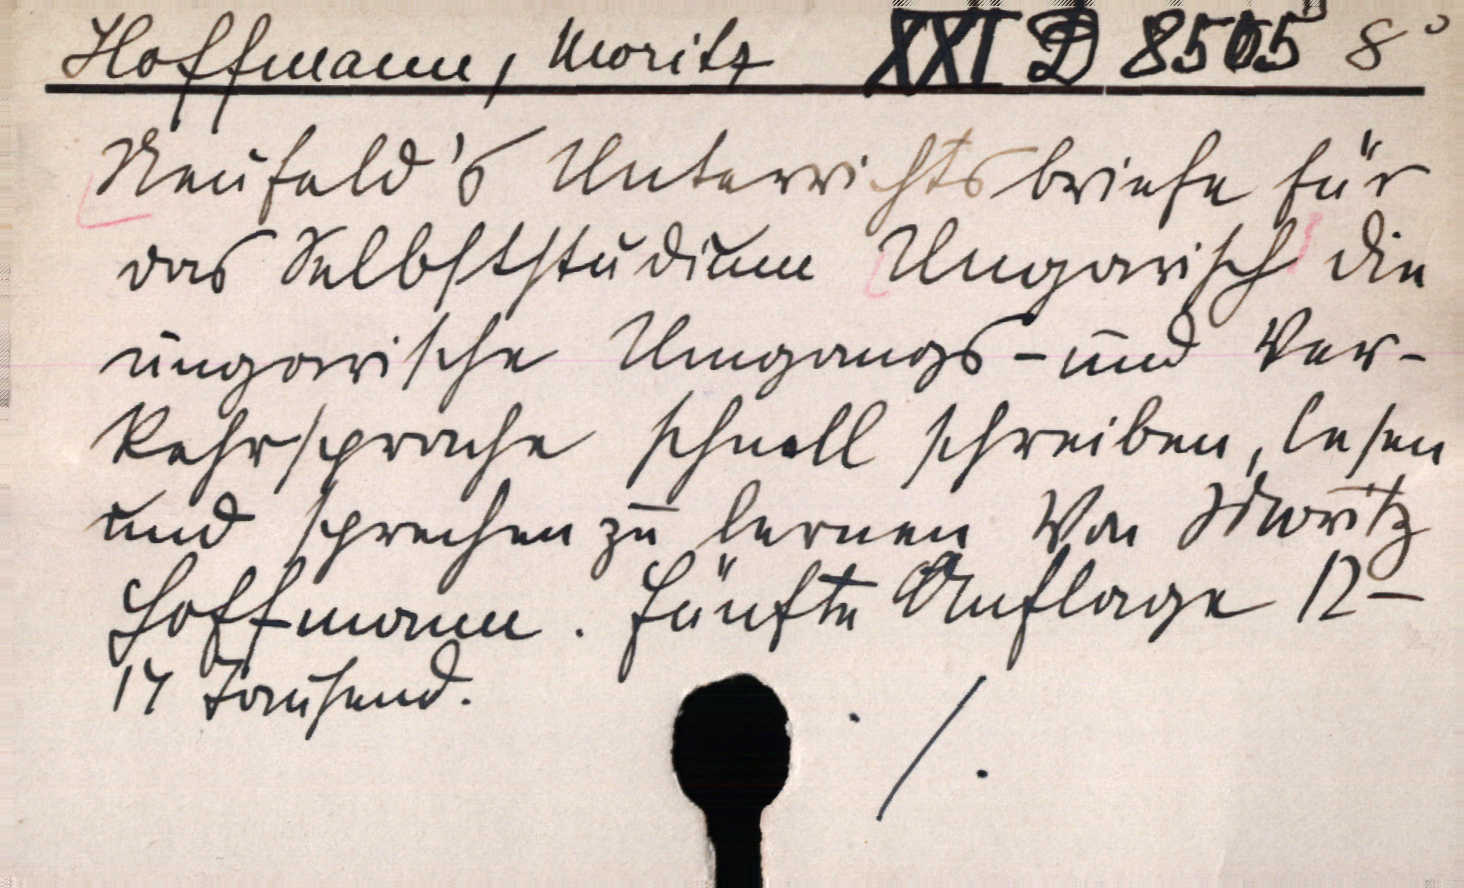 Hoffmann, Moritz XXI D 8505 8°
Neufeld's Unterrichtsbriefe für
das Selbststudium Ungarisch die
ungarische Umgangs- und Ver-
kehrsprache schnell schreiben, lesen
und sprechen zu lernen Von Moritz
Hoffmann. Fünfte Auflage 12-
14 Tausend.
/.